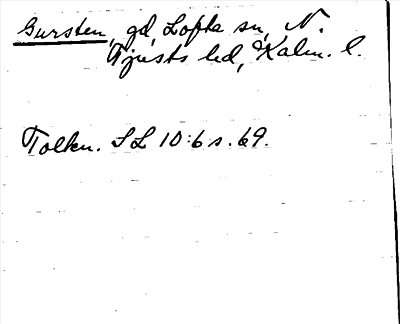 Gursten, gd, Lofta sn, N.
Tjusts hd, Kalm. l.
Tolkn. SL 10:6 s. 69.